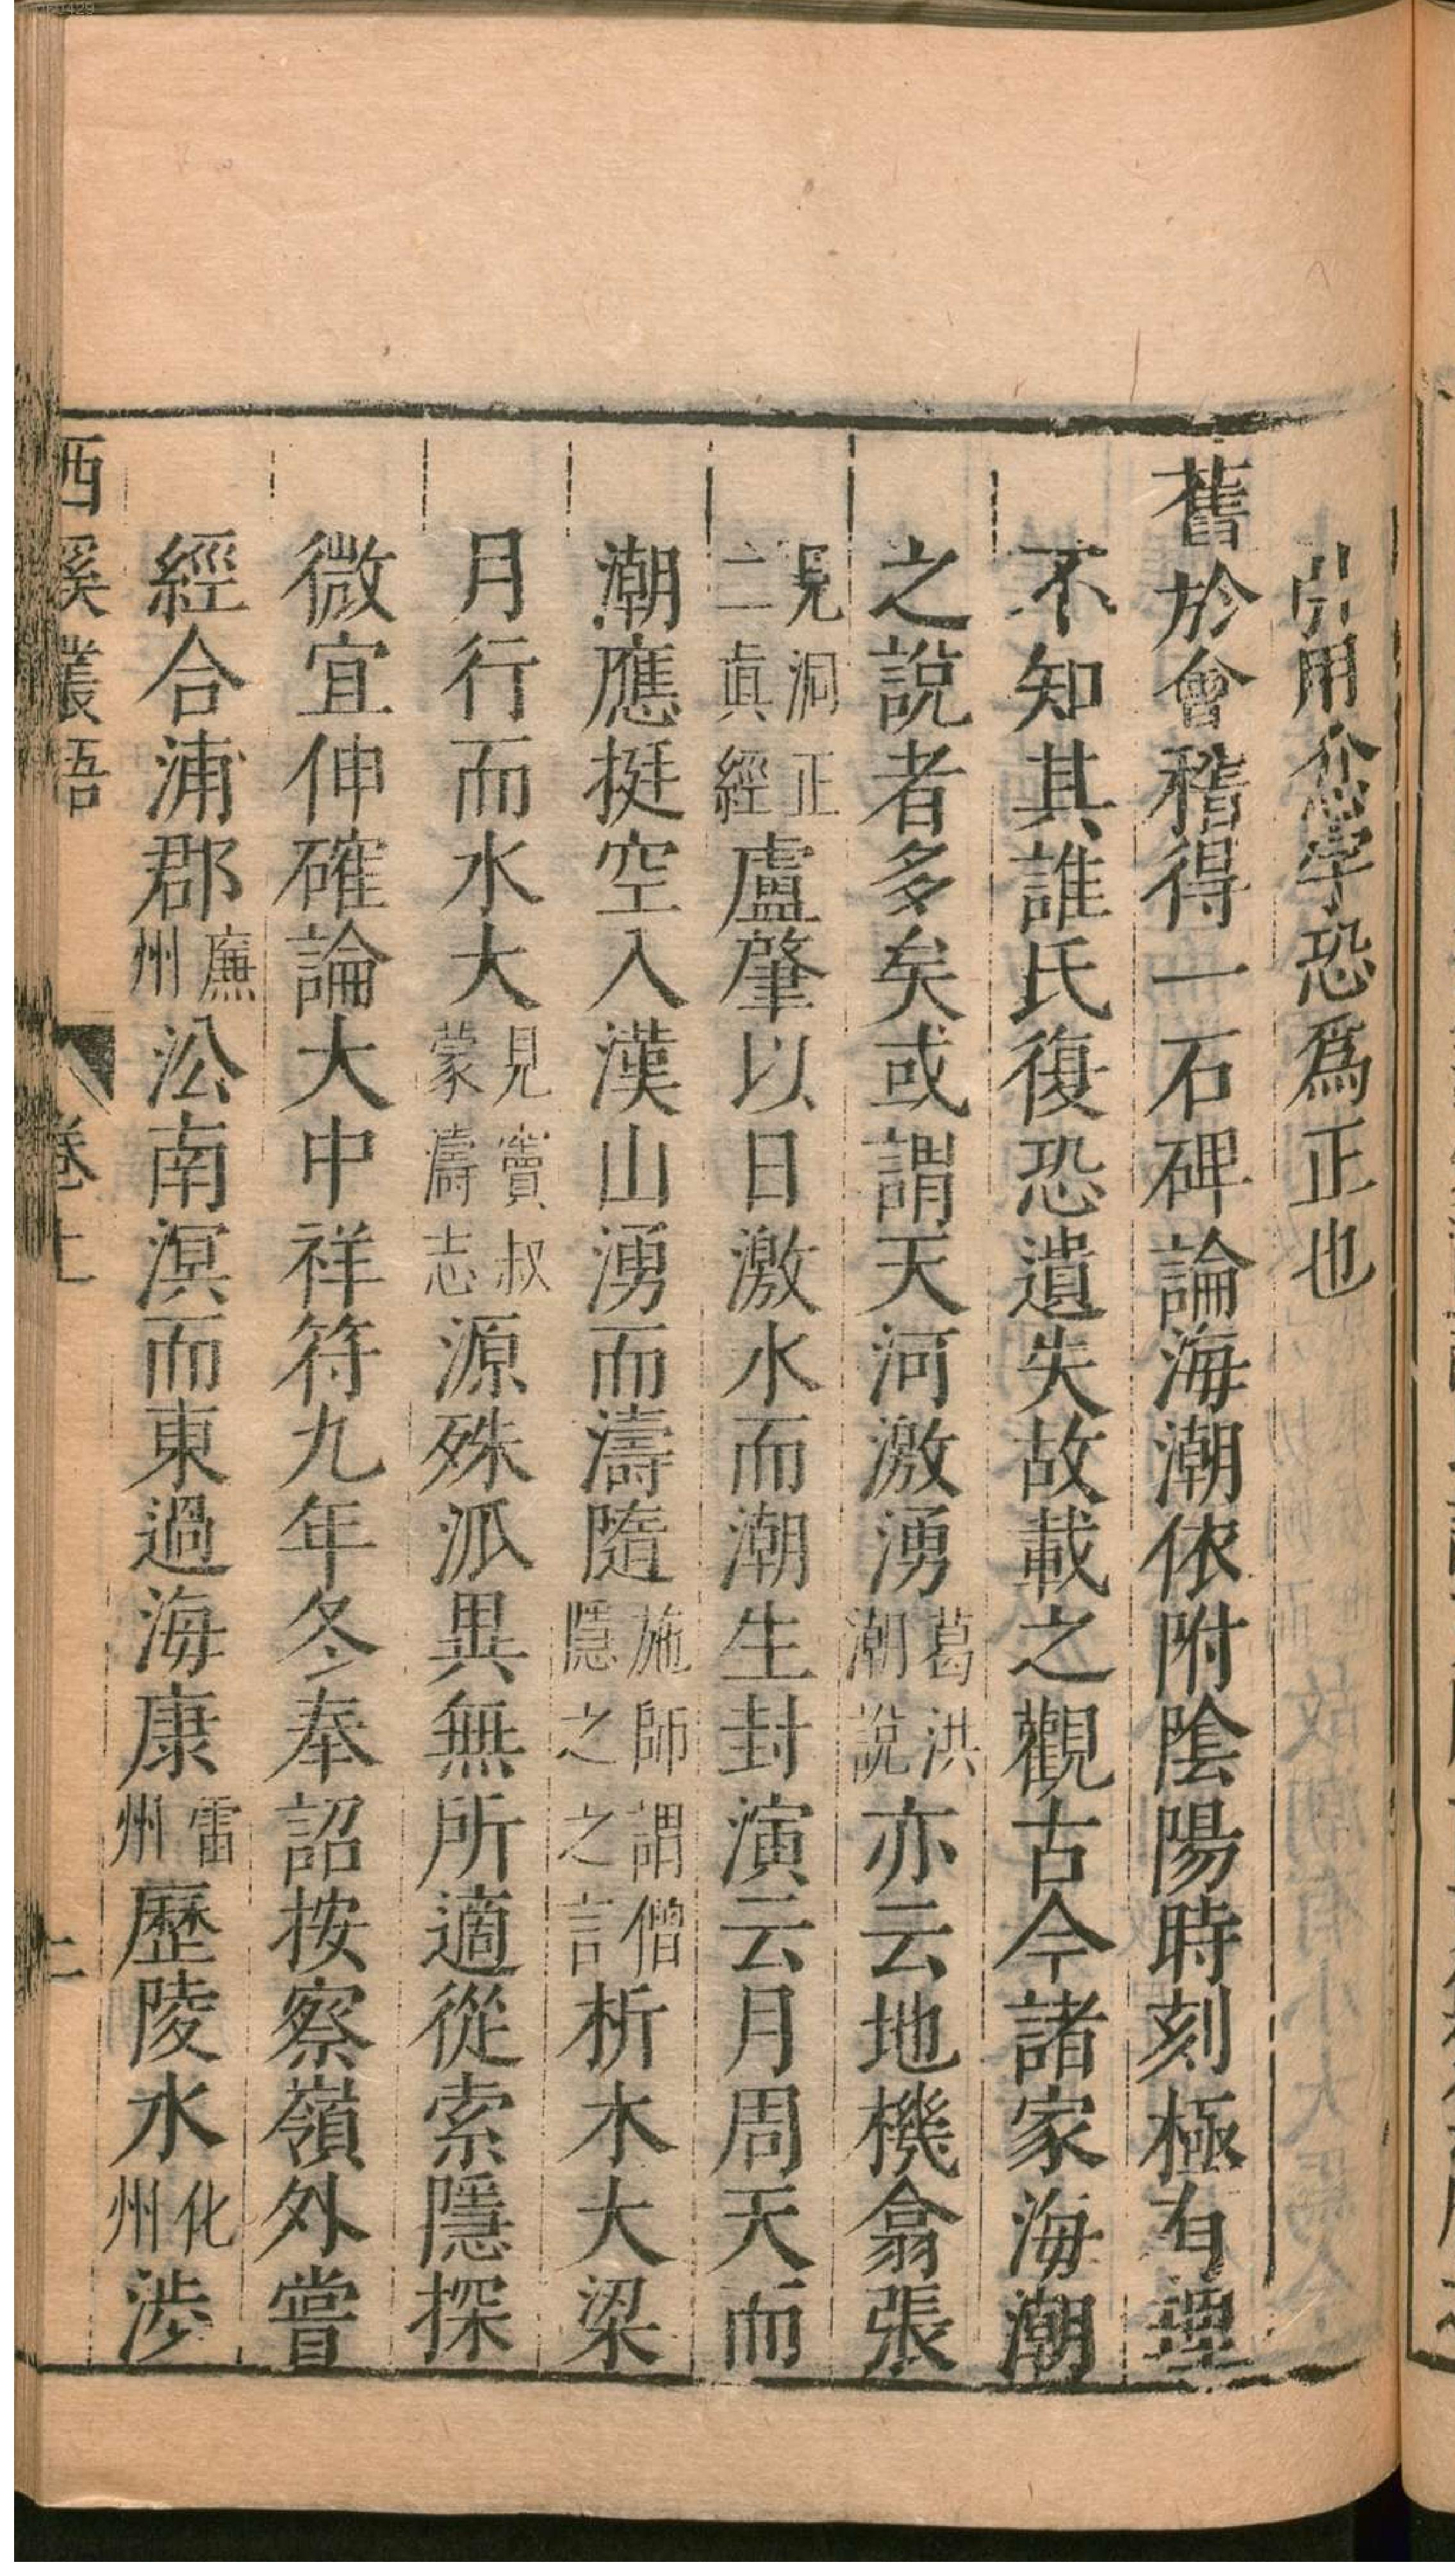 引用忿字恐爲正也
舊於會稽得一石碑論海潮依附陰陽時刻極有理
不知其誰氏復恐遺失故載之觀古今諸家海潮
之說者多矣或謂天河激湧葛洪潮說亦云地機翕張
見洞正二眞經盧肇以日激水而潮生封演云月周天而
潮應挺空入漢山湧而濤隨施師謂僧隱之之言析木大梁
月行而水大見竇叔蒙濤志源殊派異無所適從索隱探
微宜伸確論大中祥符九年冬奉詔按察嶺外嘗
經合浦郡廉州沿南溟而東過海康雷州歷陵水化州涉
西溪叢語 卷上 二